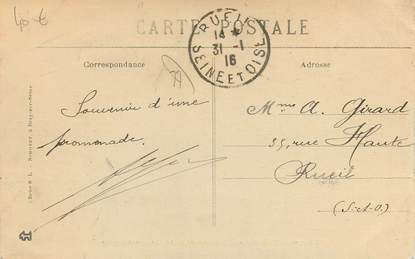 40 €
CARTE POSTALE
RUEIL
14 *
31-1
16
SEINE ET OISE
Correspondance
Adresse
Souvenir d'une
promenade.
Mme A. Girard
35, rue Haute
Rueil
(S.-&-O.)